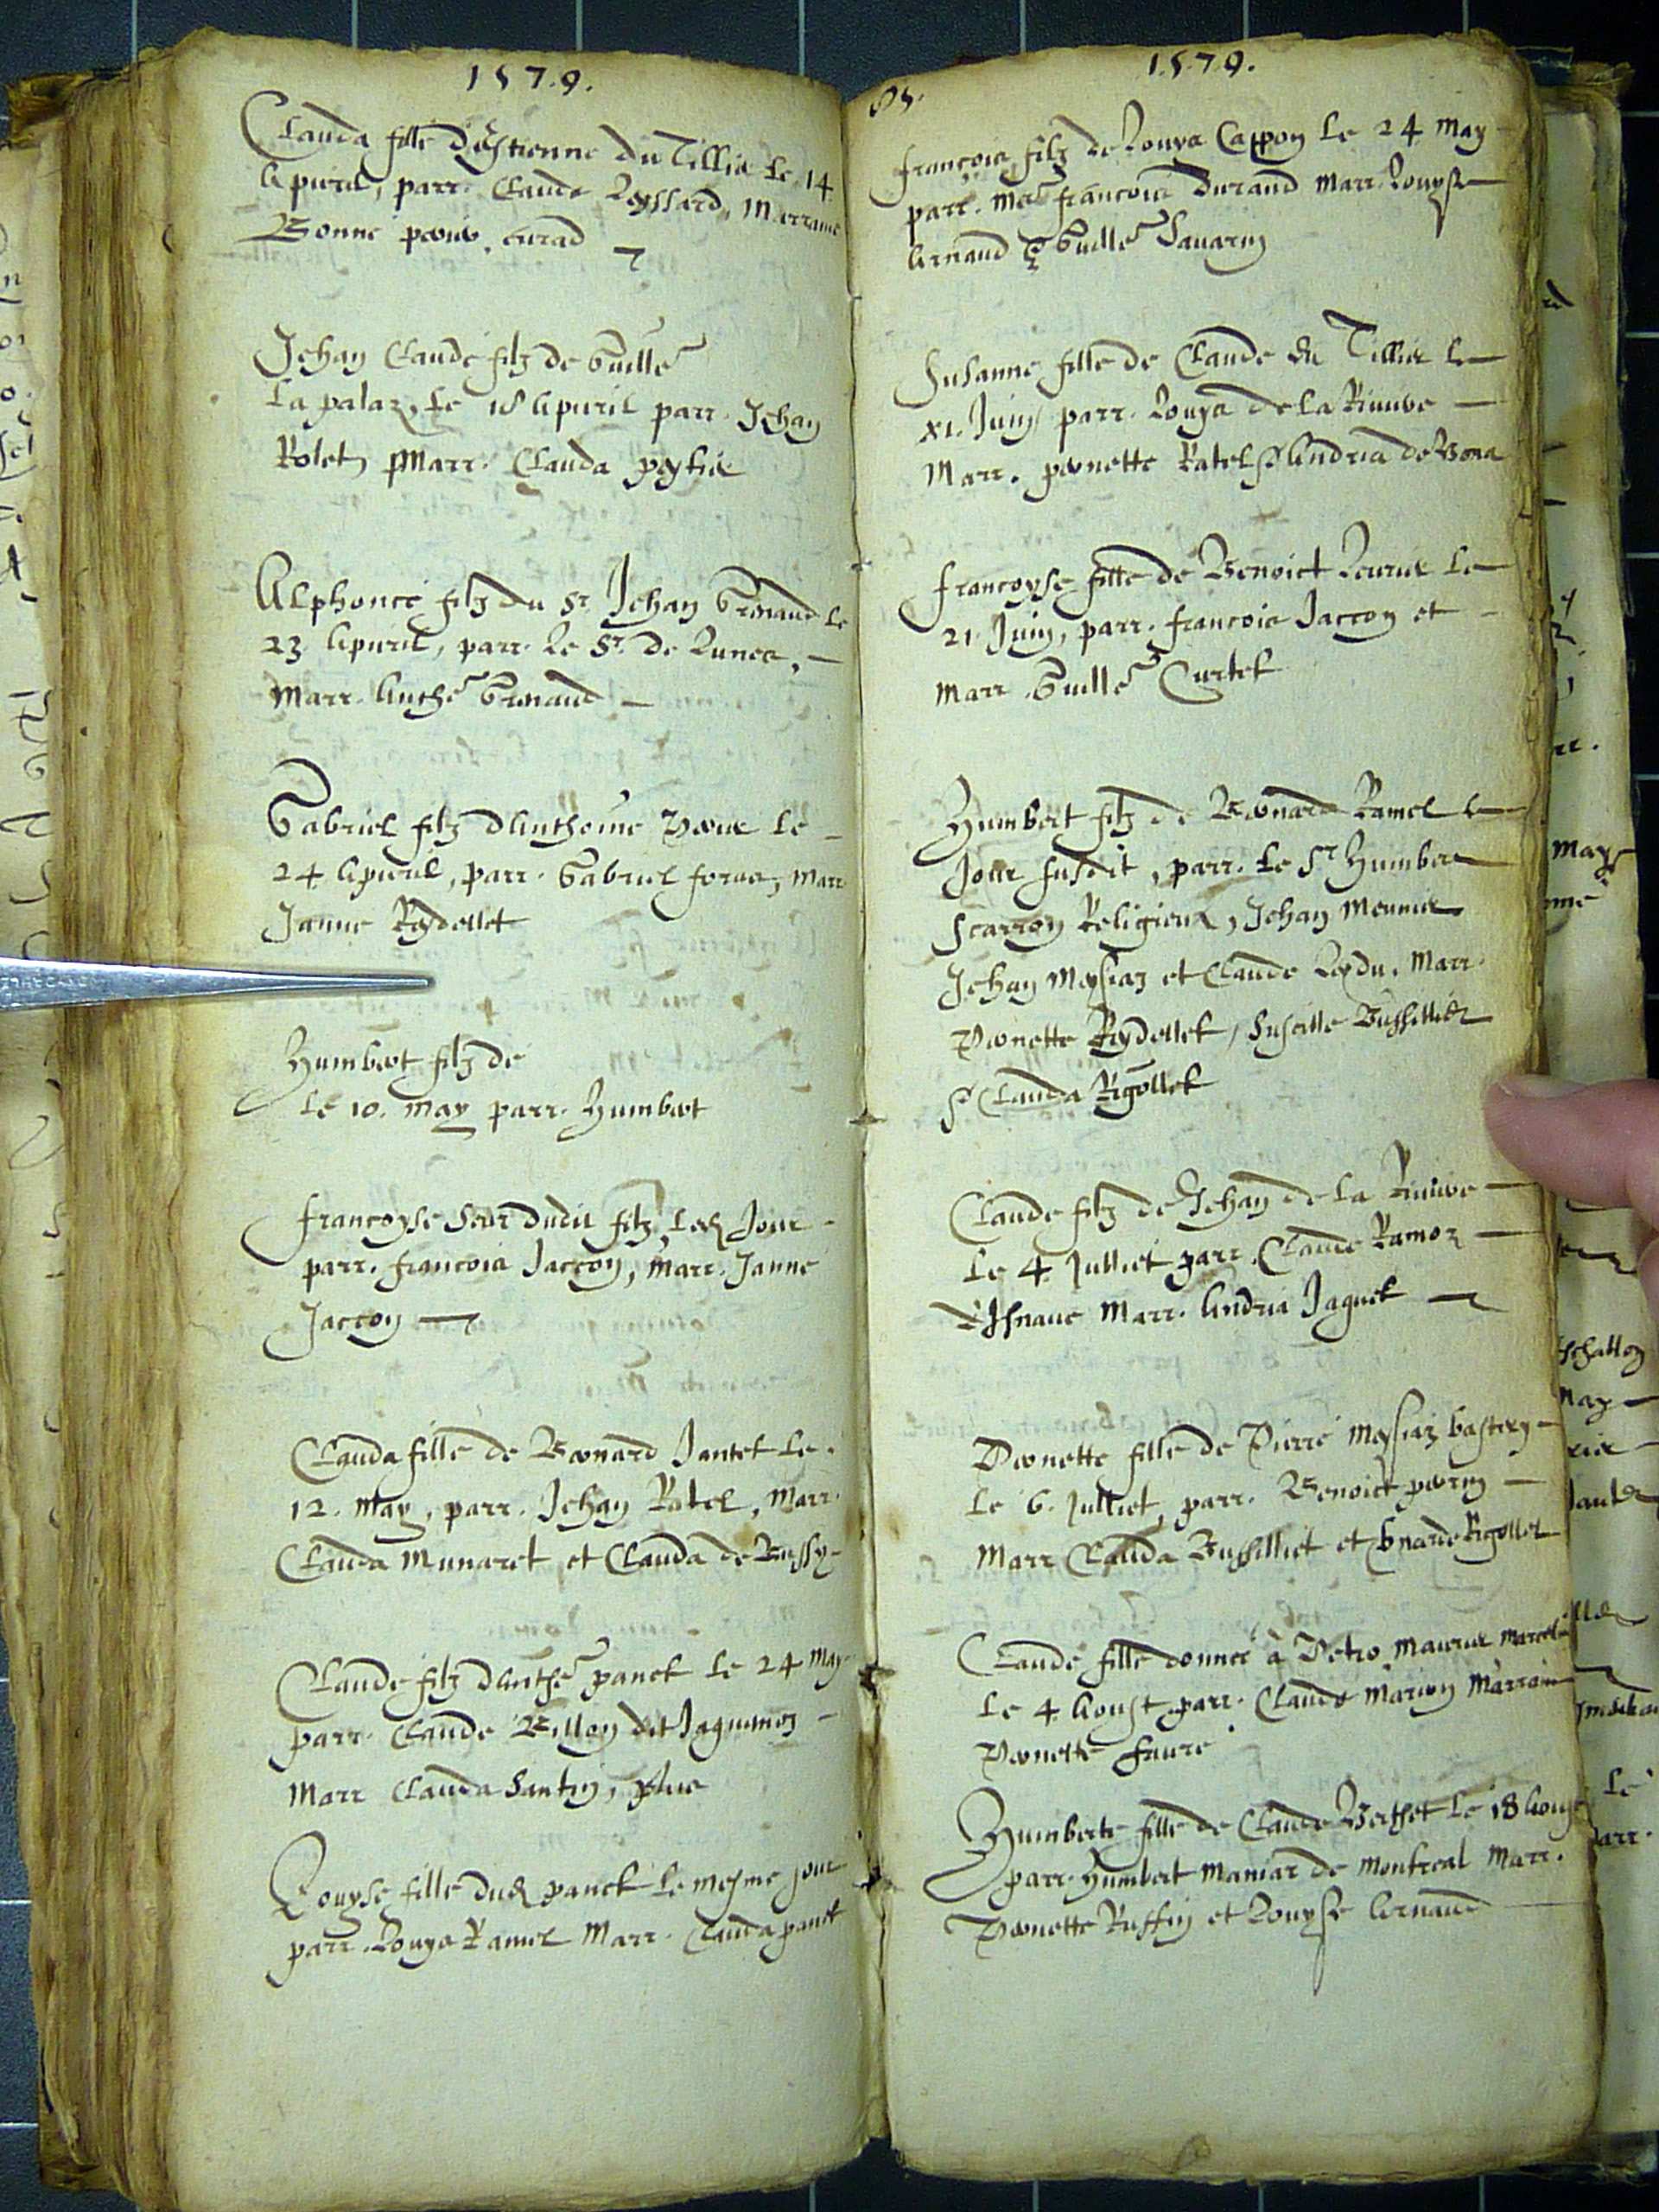 1579.
Clauda fille d'Estienne du Tillier le 14
Apvril, parr. Claude Leyssard, Marraine
Bonne
Jehan Claude filz de Guille
La palaz, le 18 Apvril parr. Jehan
Rolet, Marr. Clauda
Alphonce filz du Sr. Jehan Grenaud le
23 Apvril, parr. Le Sr. De Lunes,
Marr. Anthe Grenaud
Gabriel filz d'Anthoine le
24 Apvril, parr. Gabriel forax, Marr
Janne Reydellet
Humbert filz de
le 10. May parr. Humbert
Francoyse seur dudit filz, led. Jour
parr. Francois Jaccon, Marr. Janne
Jaccon
Clauda fille de Bernard Jantet le
12. May, parr. Jehan Ratel, Marr.
Clauda Munaret et Clauda de Bussy
Claude filz d'Anthe panet le 24 May
parr. Claude Billon dit Jaquemoz
Marr Clauda Santin,
Louyse fille dud. panet le mesme jour
parr. Louys Ramel Marr. Clauda panet
1579.
Francois filz de Louys Cappon le 24 May
parr. Me Francois Durand Marr. Louyse
Arnaud & Guille Savarin
Susanne fille de Claude du Tillier le
XI. Juin, parr. Louys de la Rivuere
Marr. pernette Ratel & Andrea de Bona
Francoyse fille de Benoict le
21. Juin, parr. Francois Jaccon et
Marr. Guille Curtet
Humbert filz de Bernard Ramel le
Jour susdit, parr. le Sr Humbert
Scarron Religieux, Jehan Meunier
Jehan Meysiaz et Claude Leydu, Marr.
Pernette Reydellet, Buffilliet
& Clauda Rigollet
Claude filz de Jehan de la Rivuere
Le 4. Julliet parr. Claude Ramoz
d'Isnave Marr. Andrea Jaquet
Pernette fille de Pierre Meysiaz
Le 6. Julliet, parr. Benoict perrin
Marr Clauda Buffilliet et Rigollet
Claude fille donnee à Petro Maurier
Le 4. Aoust parr. Claude Marion Marraine
Pernette Faure
Humberte fille de Claude Berthet le 18 Aoust
parr. Humbert Maniar de Montreal Marr.
Pernette Ruffin et Louyse Arnaud